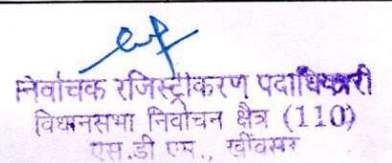 निर्वाचक रजिस्ट्रीकरण पदाधिकारी
विधानसभा निर्वाचन क्षैत्र (110)
एस.डी एम., खींवसर